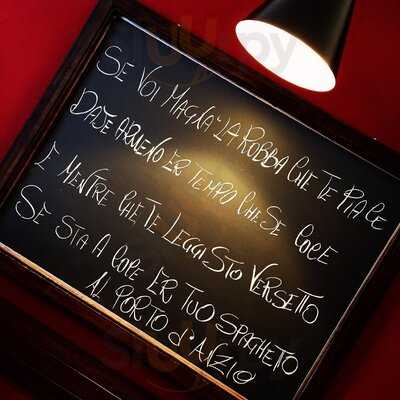 SE VOI MAGNA' LA ROBBA CHE TE PIACE
DAJE ARMENO ER TEMPO CHE SE COCE
E MENTRE CHE TE LEGGI STO VERSETTO
SE STA A COCE ER TUO SPAGHETTO
AL PORTO d'ANZIO